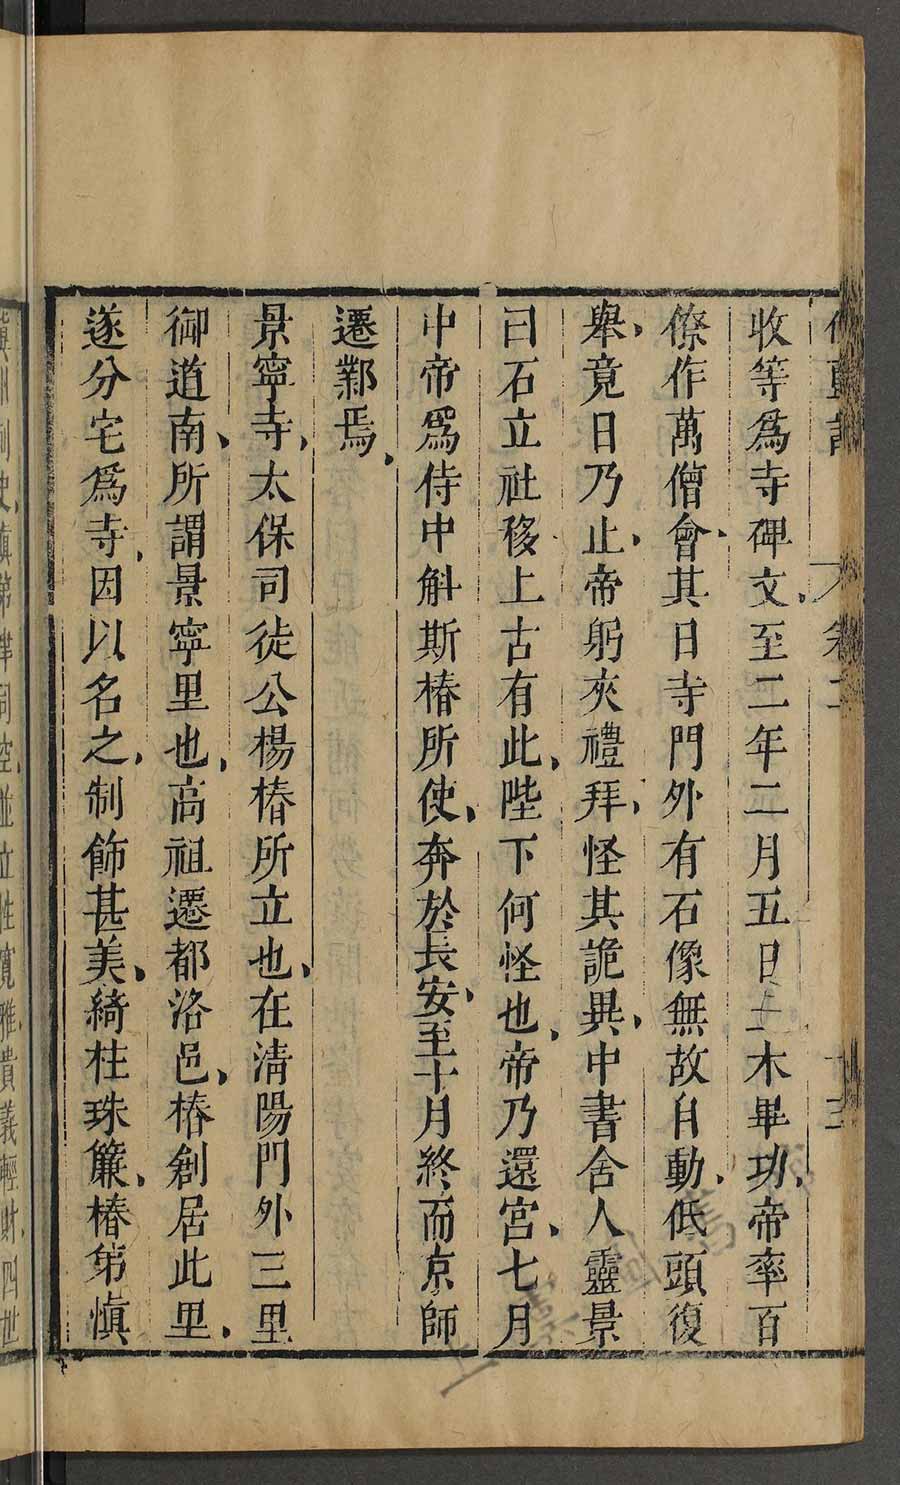 收等爲寺碑文至二年二月五日土木畢功帝率百
僚作萬僧會其日寺門外有石像無故自動低頭復
舉竟日乃止帝躬來禮拜怪其詭異中書舍人靈景
曰石立社移上古有此陛下何怪也帝乃還宮七月
中帝爲侍中斛斯椿所使奔於長安至十月終而京師
遷鄴焉
景寧寺太保司徒公楊椿所立也在清陽門外三里
御道南所謂景寧里也高祖遷都洛邑椿創居此里
遂分宅爲寺因以名之制飾甚美綺柱珠簾椿第慎